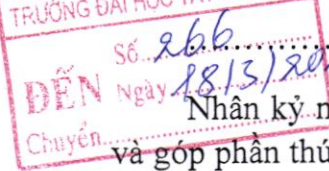 TRƯỜNG ĐẠI HỌC
Số 266
ĐẾN Ngày 18/3/20
Chuyển
Nhân kỷ
và góp phần thú